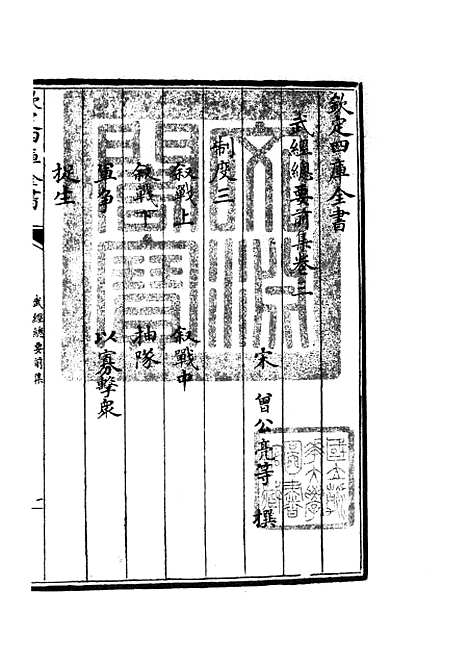 欽定四庫全書
武經總要前集卷三
宋 曾公亮等 撰
制度三
叙戰上 叙戰中
叙戰下 抽隊
軍爭 以寡擊衆
捉生
欽定四庫全書
武經總要前集